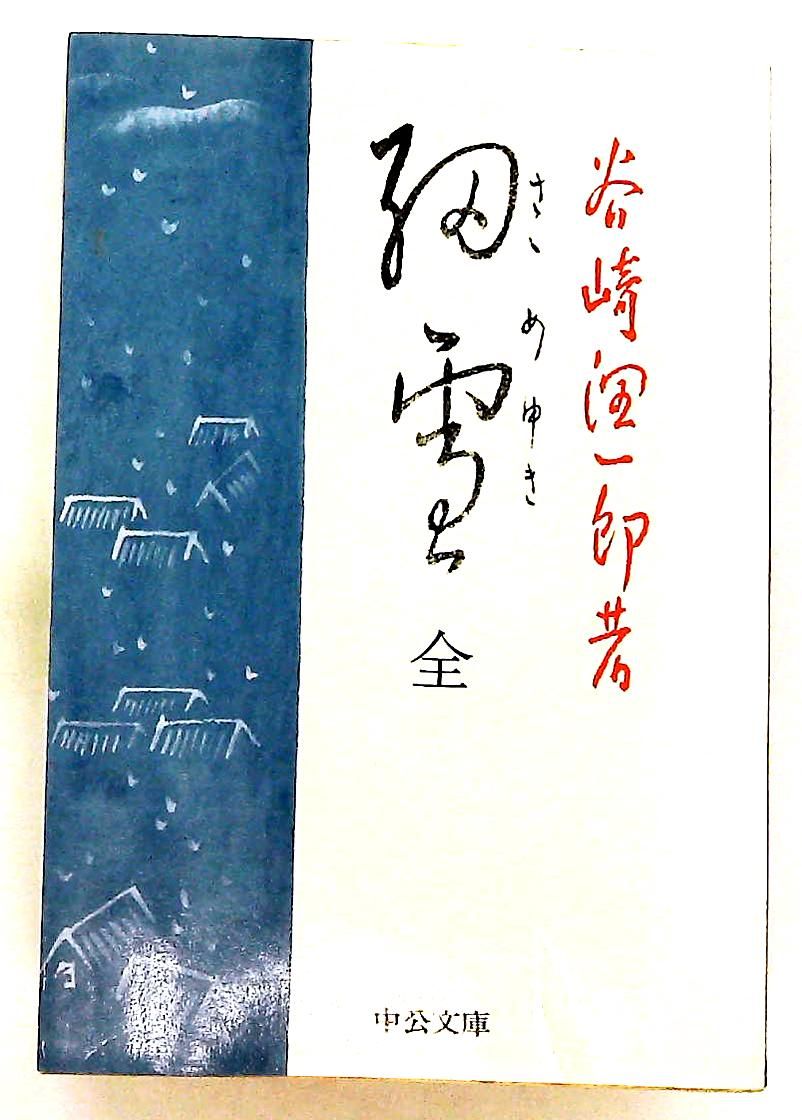 谷崎潤一郎著
さゝめゆき
細雪 全
中公文庫